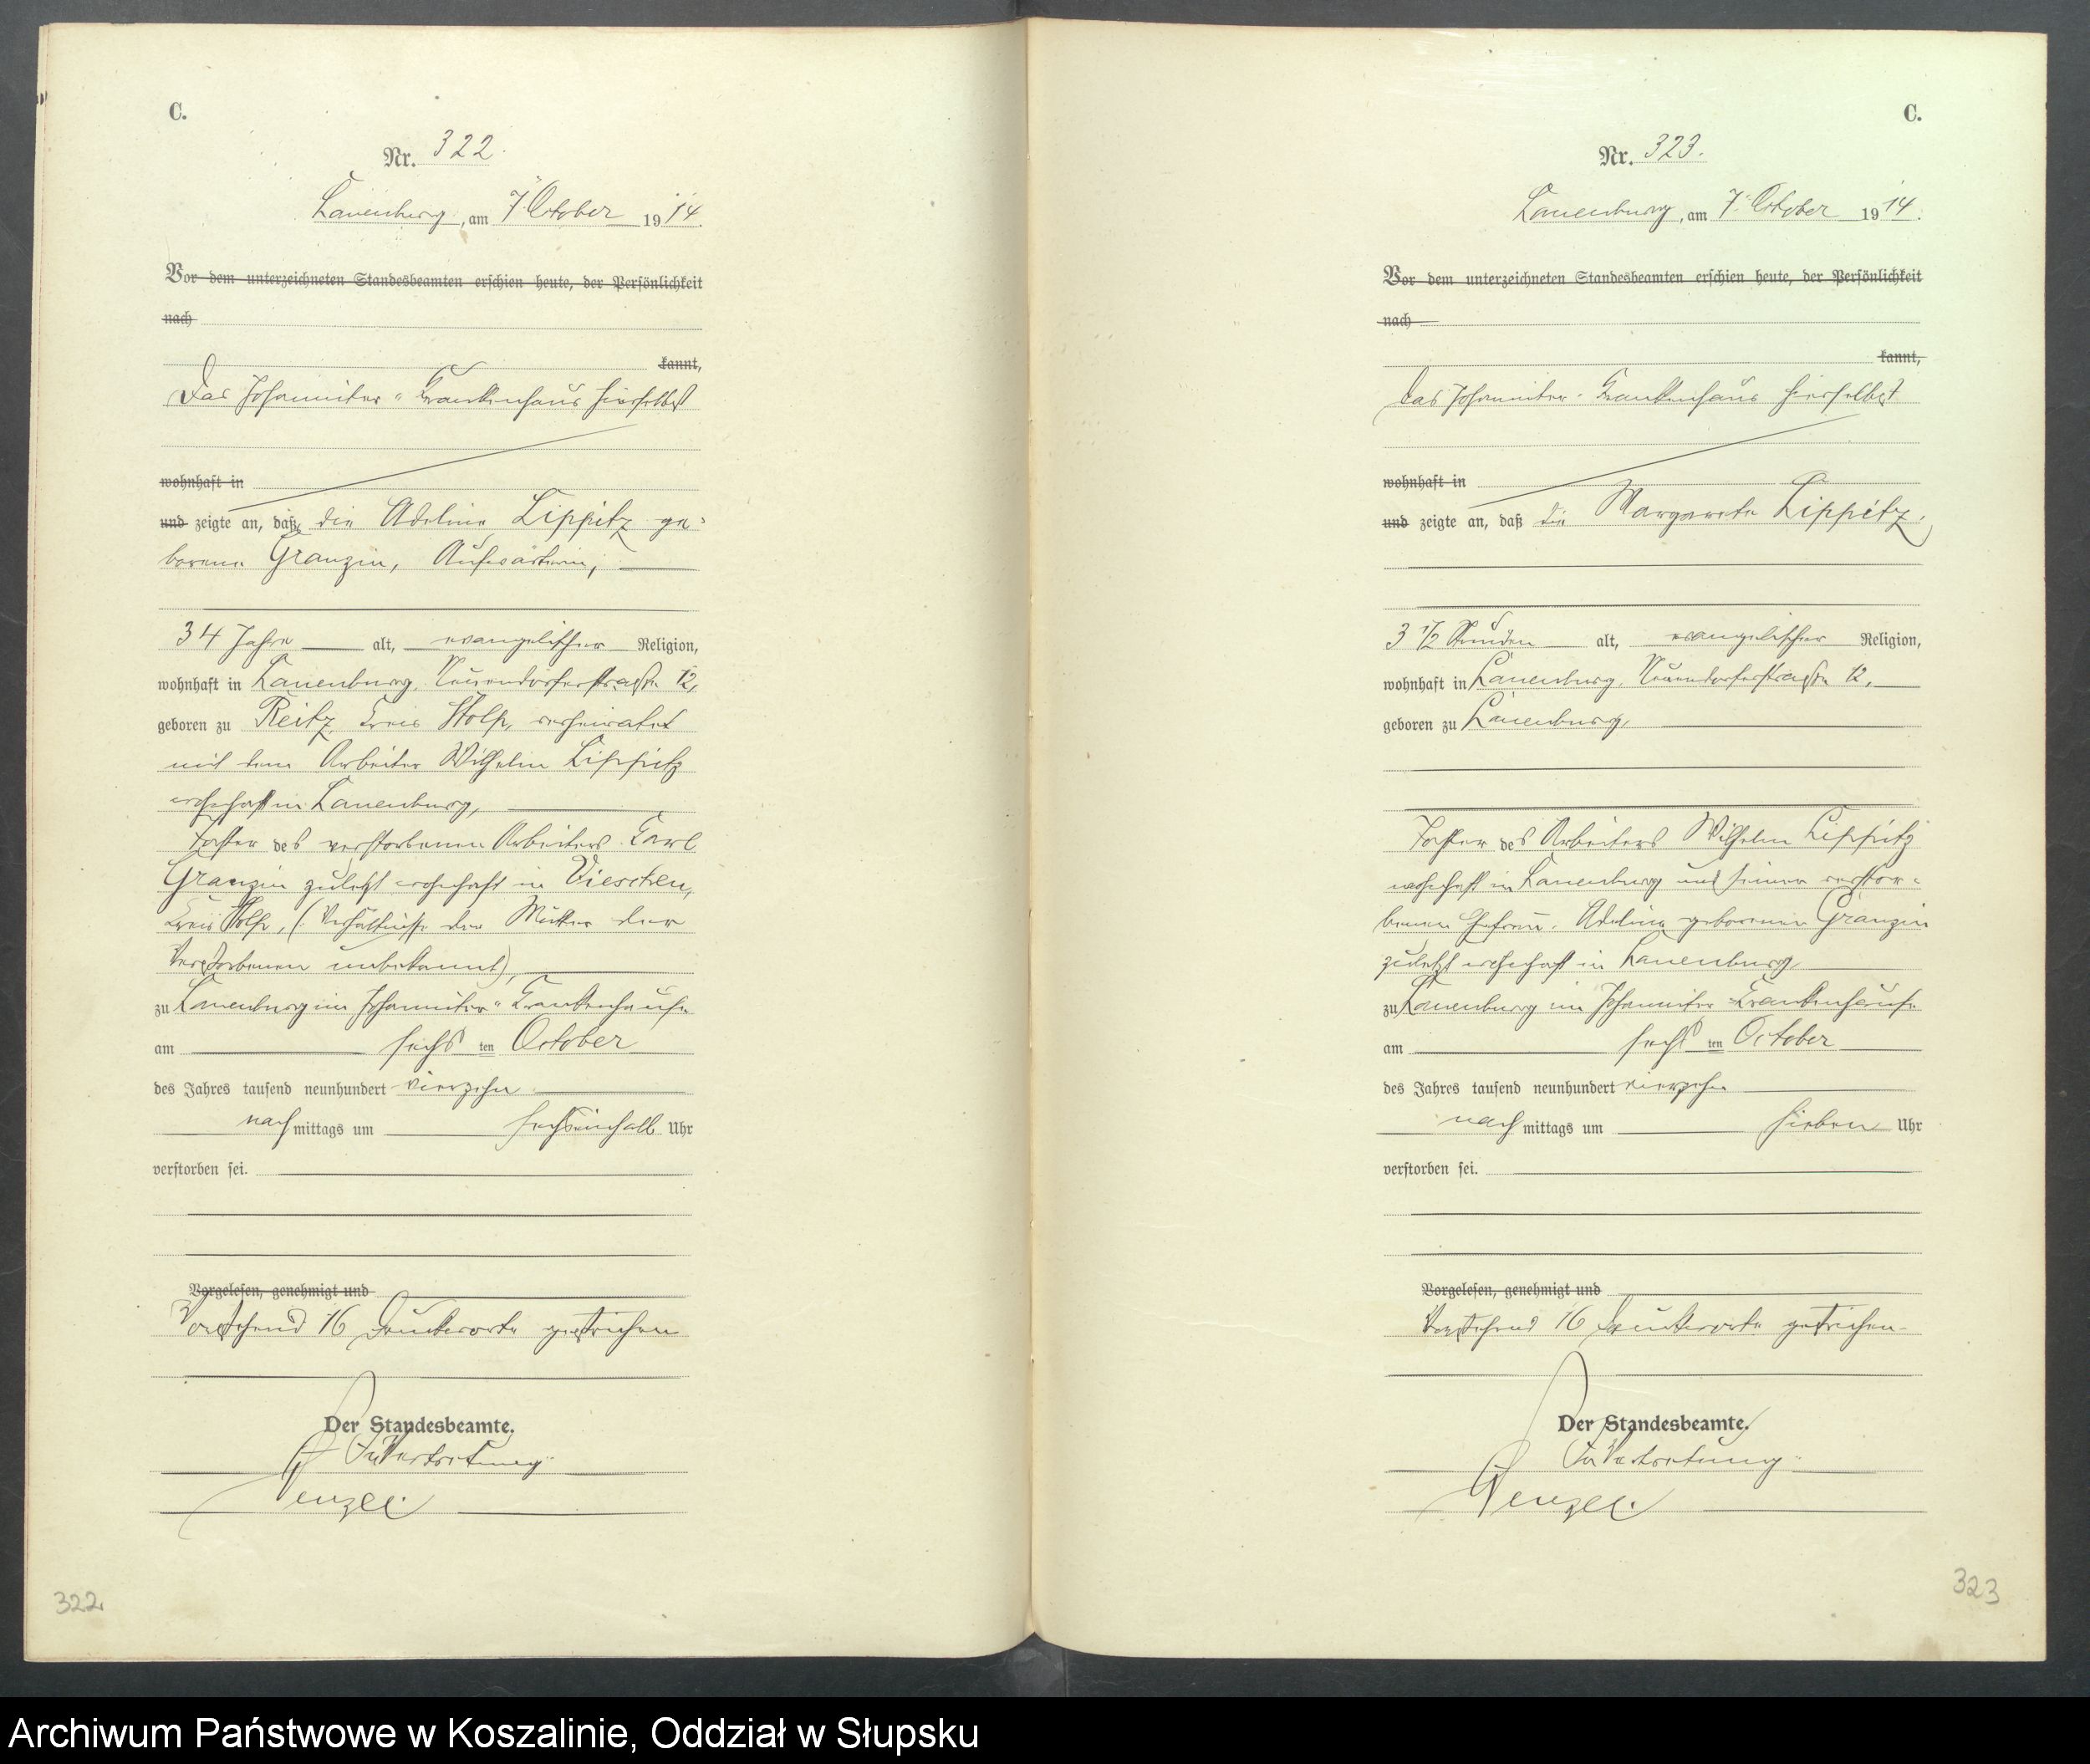 C.
Nr. 322.
Lauenburg, am 7. October 1914.
Vor dem unterzeichneten Standesbeamten erschien heute, der Persönlichkeit
nach
kannt,
Das Johanniter-Krankenhaus hierselbst
wohnhaft in
und zeigte an, daß die Adeline Lippitz ge-
borene Granzin, Aufwärterin,
34 Jahre alt, evangelischer Religion,
wohnhaft in Lauenburg, Neuendorferstraße 12,
geboren zu Reitz, Kreis Stolp, verheiratet
mit dem Arbeiter Wilhelm Lippitz
wohnhaft in Lauenburg,
Tochter des verstorbenen Arbeiters Carl
Granzin zuletzt wohnhaft in Viescken,
Kreis Stolp, (Verhältnisse der Mutter der
Verstorbenen unbekannt),
zu Lauenburg im Johanniter-Krankenhause
am sechsten October
des Jahres tausend neunhundert vierzehn
nachmittags um sechseinhalb Uhr
verstorben sei.
Vorgelesen, genehmigt und
Vorstehend 16 Druckworte gestrichen
Der Standesbeamte.
In Vertretung.
Wenzel.
322
C.
Nr. 323.
Lauenburg, am 7. October 1914.
Vor dem unterzeichneten Standesbeamten erschien heute, der Persönlichkeit
nach
kannt,
Das Johanniter-Krankenhaus hierselbst
wohnhaft in
und zeigte an, daß die Margarete Lippitz,
3 1/2 Stunden alt, evangelischer Religion,
wohnhaft in Lauenburg, Neuendorferstraße 12,
geboren zu Lauenburg,
Tochter des Arbeiters Wilhelm Lippitz
wohnhaft in Lauenburg und seiner verstor-
benen Ehefrau, Adeline geborenen Granzin
zuletzt wohnhaft in Lauenburg
zu Lauenburg im Johanniter-Krankenhause
am sechsten October
des Jahres tausend neunhundert vierzehn
nachmittags um sieben Uhr
verstorben sei.
Vorgelesen, genehmigt und
Vorstehend 16 Druckworte gestrichen
Der Standesbeamte.
In Vertretung.
Wenzel.
323
Archiwum Państwowe w Koszalinie, Oddział w Słupsku